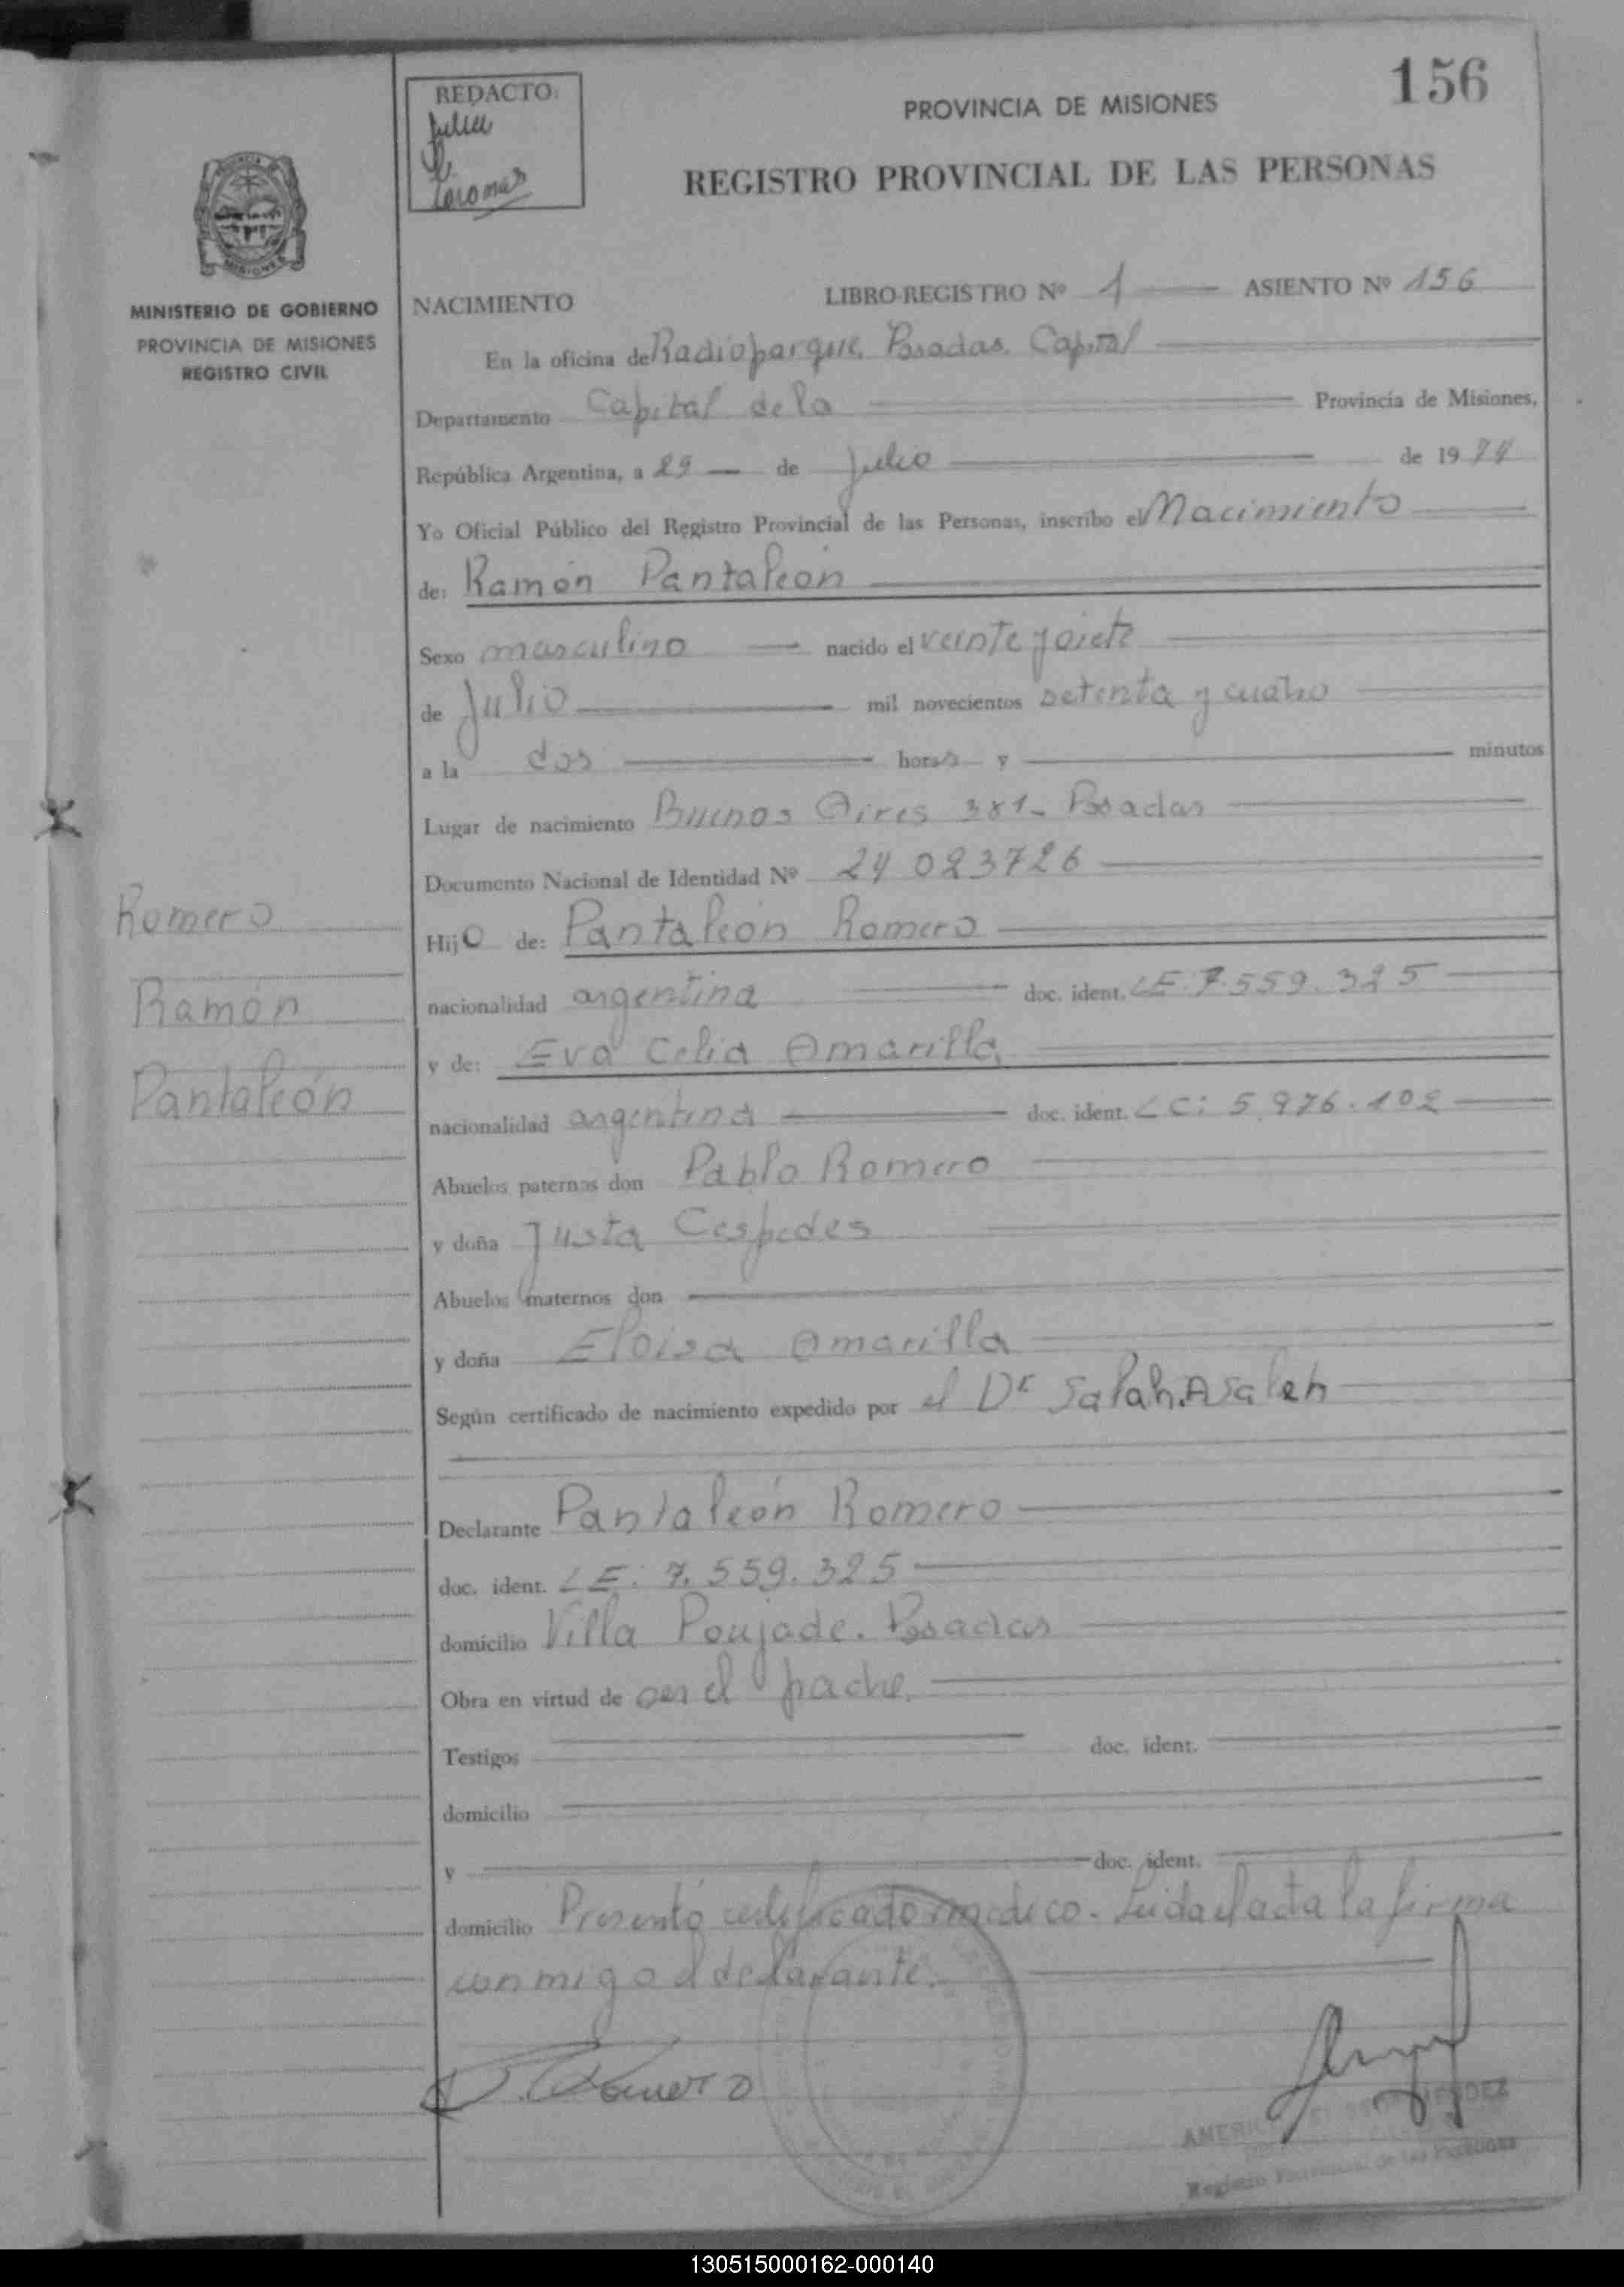 156
REDACTO:
Julia
PROVINCIA DE MISIONES
REGISTRO PROVINCIAL DE LAS PERSONAS
MINISTERIO DE GOBIERNO
PROVINCIA DE MISIONES
REGISTRO CIVIL
NACIMIENTO LIBRO REGISTRO Nº 1 ASIENTO Nº 156
En la oficina de Radioparque, Posadas. Capital
Departamento Capital de la Provincia de Misiones,
República Argentina, a 29 de Julio de 1974
Yo Oficial Público del Registro Provincial de las Personas, inscribo el Nacimiento
de: Ramón Pantaleón
Sexo masculino nacido el veinte y siete
de Julio mil novecientos setenta y cuatro
a la dos horas y minutos
Lugar de nacimiento Buenos Aires 381- Posadas
Documento Nacional de Identidad Nº 24 023726
Romero
Ramón
Pantaleón
Hijo de: Pantaleón Romero
nacionalidad argentina doc. ident. LE: 7.559.325
y de: Eva Celia Amarilla
nacionalidad argentina doc. ident. LC: 5.976.102
Abuelos paternos don Pablo Romero
y doña Justa Cespedes
Abuelos maternos don
y doña Eloisa Amarilla
Según certificado de nacimiento expedido por el Dr Salah A Saleh
Declarante Pantaleón Romero
doc. ident. LE: 7.559.325
domicilio Villa Poujade. Posadas
Obra en virtud de ser el padre.
Testigos doc. ident.
domicilio
y doc. ident.
domicilio Presentó certificado médico. Leida el acta la firma
conmigo el declarante.
P. Romero
Registro Provincial de las Personas
130515000162-000140